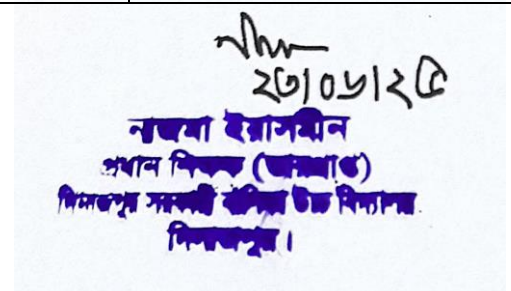 ২৩/০৬/২৫
নাজমা ইয়াসমীন
প্রধান শিক্ষক (ভারপ্রাপ্ত)
দিনাজপুর সরকারী বালিকা উচ্চ বিদ্যালয়
দিনাজপুর।